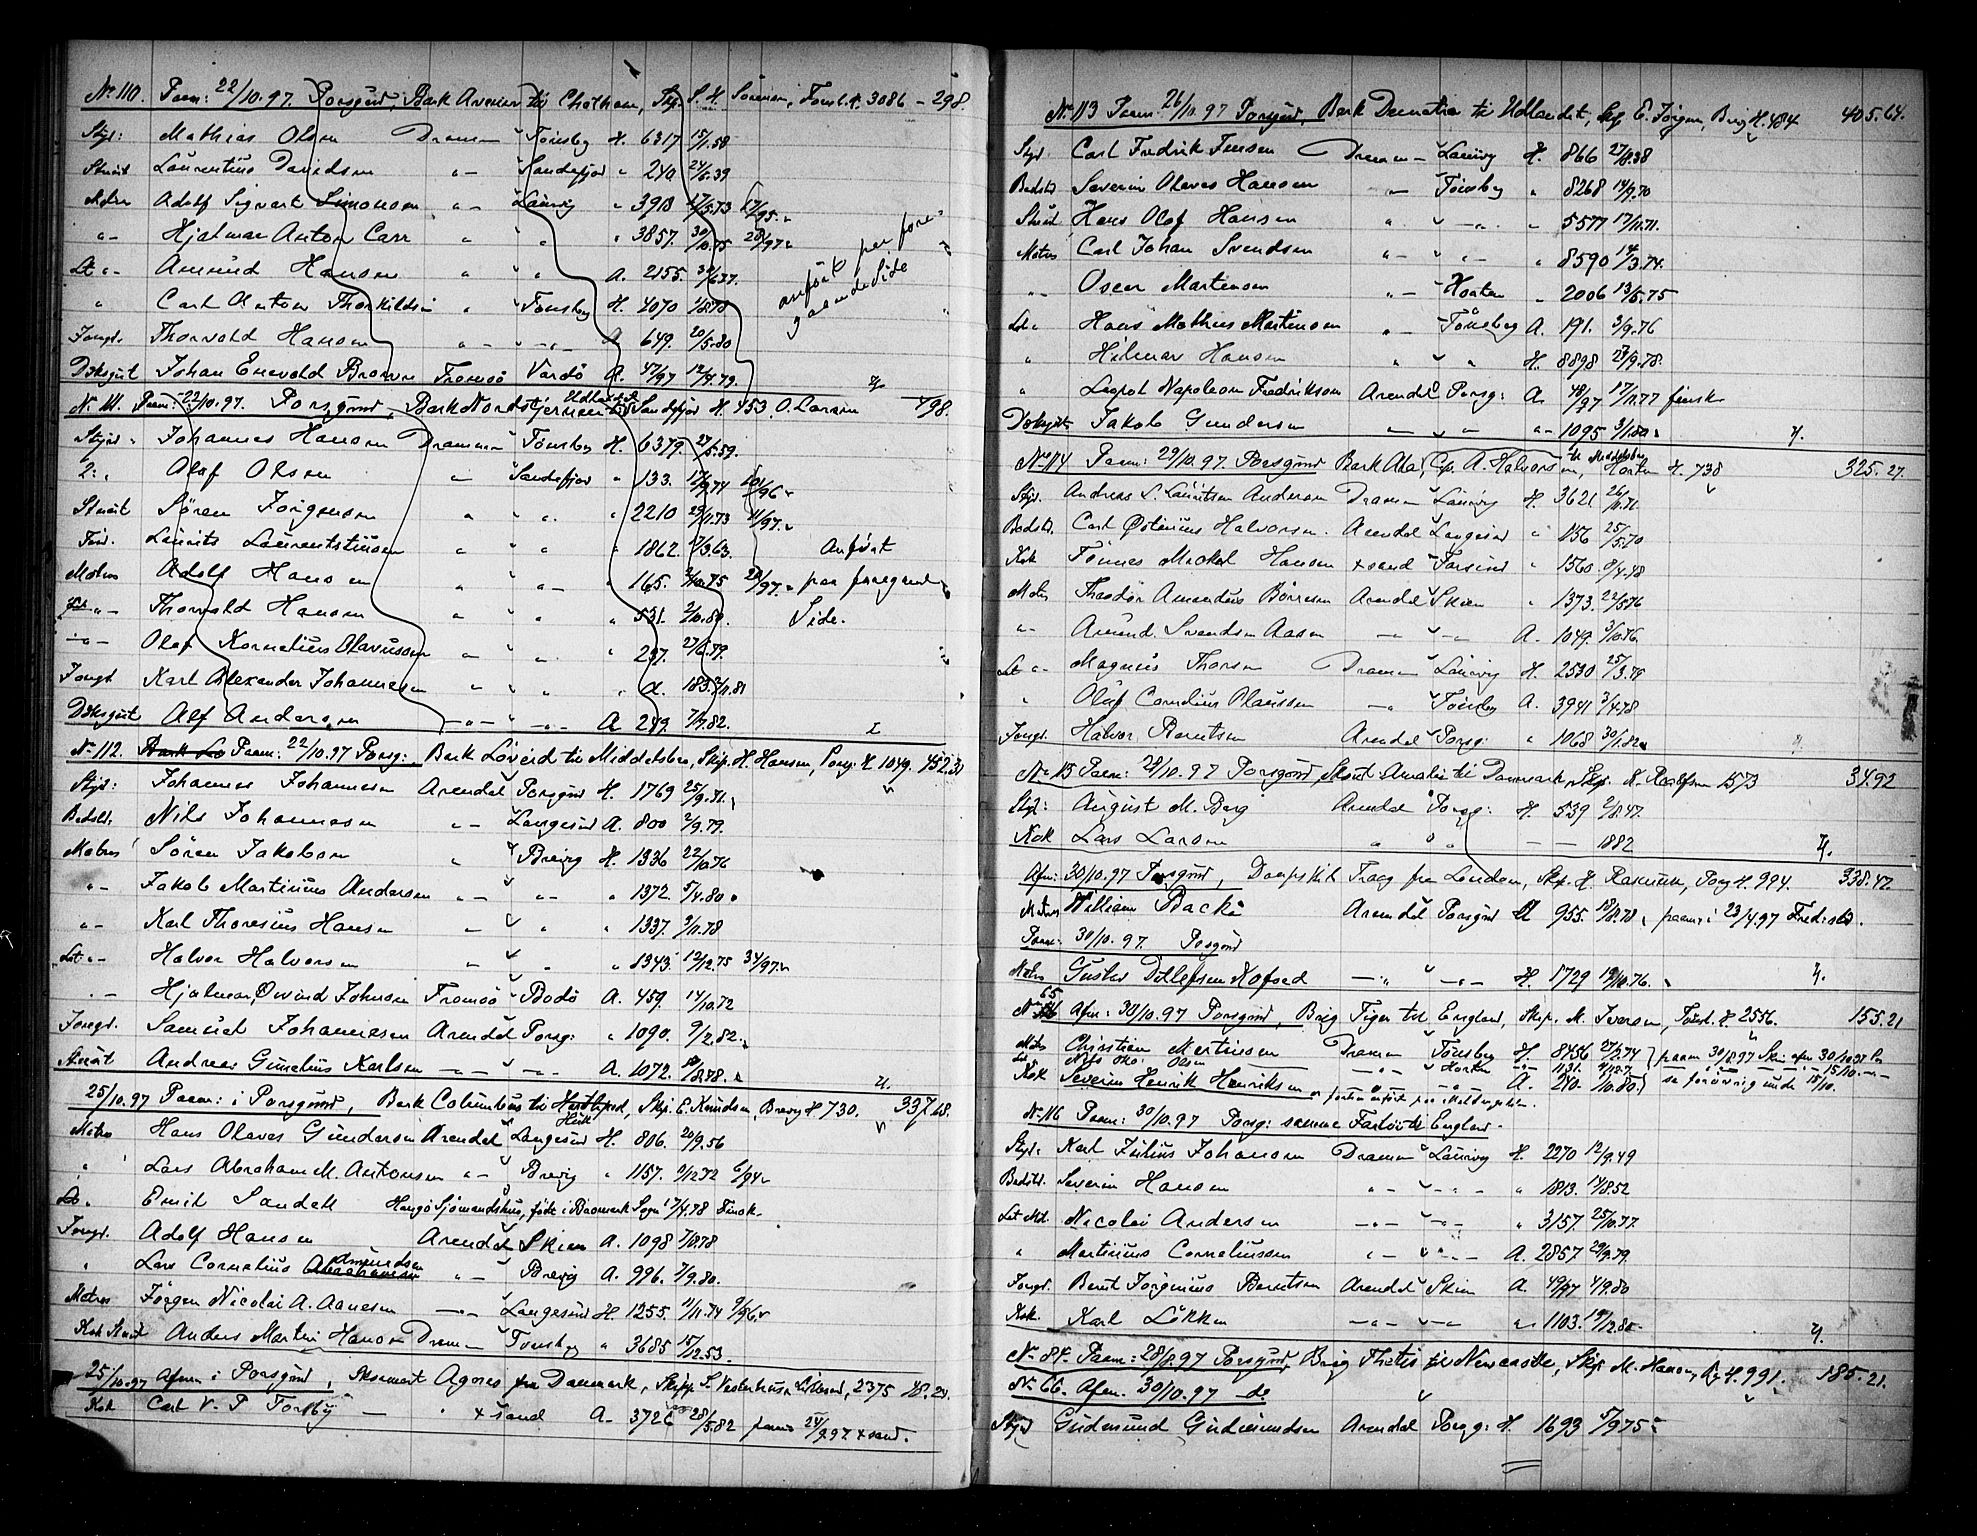 No 110. Paam: 22/10.97. Porsgrund, Bark Avenir til Chatham, Skp. S. H. Sörensen, Tönsb. H. 3086 - 298.
Styr: Mathias Olsen Drammen Tönsberg H. 6317 15/1.58
Stuert Laurentius Davidsen " - Sandefjord " 240 24/6.39
Adolf Sigvart Simonsen " - Laurvig " 3913 17/5.73
" - Hjalmar Anton Carr " " " 3857. 30/10.75
Lt " - Amund Hansen " " A. 2155.
" Carl Anton Thorkildsen " Tönsberg H. 4070
anfört paa foregaaende Side
Jungm. Thorvald Hansen " - " - A 649. 20/5.80
Dæksgut Johan Enevold Tromsö Vardö A. 47/97 12/4.79.
No 111. Paam: 22/10.97. Porsgrund, Bark Nordstjernen til Sandefjord H. 453 O. Larsen 498.
Styrm. Johannes Hansen Drammen Tönsberg H. 6379. 27/5.59.
2: " Olaf Olsen " - Sandefjord " 133.
Stuert Sören Jörgensen " " " 2210 29/11.73
Töm. Laurits Laurentsiusen " " " 1862. 17/3.63. Anfört
Matros Adolf Hansen " " - " 165. paa foregaaende
" - Thorvald Hansen " " " 531. 2/10.80. Side.
- " - Olaf Kornelius Olavussen " " " 237. 27/6.79.
Jungm Karl Alexander Johannesen " " " A. 183. 2/11.81
Dæksgut Alf Andersen - " - " - " - A 249. 7/7.82.
No 112. Paam: 22/10.97 Porsg: Bark Löveid til Middelsbro, Skip. H. Hansen, Porsg. H. 1049. 452.31
Styr: Johannes Johannesen Arendal Porsgrund H. 1769 25/9.31.
Bådsm. Nils Johannesen " - Langesund A. 800 2/9.79.
Matros Sören Jakobsen " Brevig H. 1336 22/10.76
" - Jakob Martinius Andersen " - " - " 1372. 5/4.80
" - Karl Thoresius Hansen " " " 1337. 3/11.78
Let " - Halvor Halvorsen " " " 1343. 12/12.75
" - Hjalmar Øivind Johnsen Tromsö Bodö A. 459. 14/10.72
Jungm. Samuel Johannesen Arendal Porsg: " 1090. 9/2.82.
Stuert Andreas Gunelius Karlsen - " - " - A. 1072. 10/8.78.
25/10.97 Paam: i Porsgrund, Bark Columbus til Hartlepool, Skp. E. Knudsen, Brevig H. 730. 337.68.
Matros Hans Olaves Gundersen Arendal Langesund H. 806. 20/9.56
" Lars Abraham M. Antonsen " - Brevig " 1157. 9/12.72
" Emil Sandell Hangö Sjömandshus, född i Bromark Sogn 17/4.78 Finsk.
Jungm. Adolf Hansen Arendal Skien A. 1098 7/10.78
" Lars Cornelius Amundsen " - Brevig A. 996. 7/9.80.
Matros Jörgen Nicolai A. Aanesen - " - Langesund H. 1255. 11/11.74
Kok Stuert Anders Martin Hansen Drammen Tönsberg " 3685 15/12.53.
25/10.97 Afm i Porsgrund, Skonnert Agnes fra Danmark, Skipp. S. Vesterhus, Lillesand, 2375 48.24.
Kok Carl V. P. Forsby - " x sand A. 3726 28/5.82 paam 24/9.97 x sand.
No 113 Paam: 26/10.97 Porsgrund, Bark Demetra til Udlandet, Skp E. Jörgensen, Brevig H. 484 405.64.
Styr. Carl Fredrik Jensen Drammen Laurvig H. 866 27/8.38
Bådsm Severin Olaves Hansen " - Tönsberg " 8268 14/9.70
Stuert Hans Olaf Hansen " " - " 5577 17/11.71.
Matros Carl Johan Svendsen " - " " - " 8590 14/3.74.
" - Oscar Martensen " - Horten " 2006 13/5.75
Let " Hans Mathias Martensen " - Tönsberg A. 191. 3/9.76
" Hilmar Hansen " " " H. 8898 27/9.78.
" Leopot Napoleon Fredriksen Arendal Porsg: A. 48/97 17/11.77 finsk
Dæksgut Jakob Gundersen " " " " - 1095 3/1.80
No 114 Paam: 29/10.97. Porsgrund Bark Ata, Cp. A. Halvorsen, til Middelsbro, Horten H. 738 325.27.
Styr. Andreas L. Lauritsen Andersen Drammen Laurvig H. 3621. 26/10.71
Bådstm Carl Østenius Halvorsen. Arendal Langesund " 156 25/5.70
Kok Tönnes Mackel Hansen x sand Farsund " 1560. 9/4.48
Matros Theodor Amandus Börresen Arendal Skien " 1373. 22/5.76
" - Amund Svendsen Aasen - " - A. 1049. 3/10.76.
Let " - Magnus Thorsen Drammen Laurvig H. 2530 25/3.79
" Oluf Cornelius Olaussen - " Tönsberg A. 3941 3/4.78
Jungm. Halvor Berntsen Arendal Porsg: " 1068 30/1.82
No 115 Paam: 29/10.97 Porsgrund, Skonnert Amalie til Danmark, Skp. N. Roalfsen 1573 34.92
Styr: August M. Berg Arendal Porsg: H. 539 2/8.47.
Kok Lars Larsen " " " - - 1882
Afm: 30/10.97 Porsgrund, Dampskib Traag fra London, Skp. H. Rasmussen, Porsg. H. 994. 338.42
Matros William Backe Arendal Porsgrund A 955. 18/11.78. paam: i 23/4.97 Fredrikstd.
Paam: 30/10.97. Porsgrund
Matros Gustav Ditlefsen Kofoed - " - " - H. 1729 19/10.76.
No 65 Afm: 30/10.97 Porsgrund, Brig Tiger til England, Skip. M. Iversen, Tönsb. H. 2556. 155.21
Matros Christian Martinsen Drammen Tönsberg H. 8456 27/2.74 paam 30/8.97 Skien afm 30/10.97 Po
Let " Nils Olsen - " - Horten - " - 1131.
Kok Severin Henrik Henriksen - " - A. 240. 1/10.80.
No 116 Paam: 30/10.97 Porsg: samme Fartöi til England.
Styr. Karl Julius Johansen Drammen Laurvig H. 2270 12/9.49
Bådstm. Severin Hansen " - " - " 1813. 14/8.52
Let Mat. Nicolai Andersen - " - " - " 3157. 25/10.77.
" Martinius Corneliussen " - " - A. 2857 29/9.79.
Jungm. Bernt Jörginius Berntsen Arendal Skien A. 49/97 4/9.80
Kok. Karl Lökken - " - " - " 1103. 19/12.80.
No 84. Paam: 28/8.97 Porsgrund, Brig Thetis til Newcastle, Skip. M. Hansen, Brg H. 991. 185.21.
No 66. Afm. 30/10.97 - do
Styrm Gudmund Gudmundsen Arendal Porsg: H. 1693 5/9.75